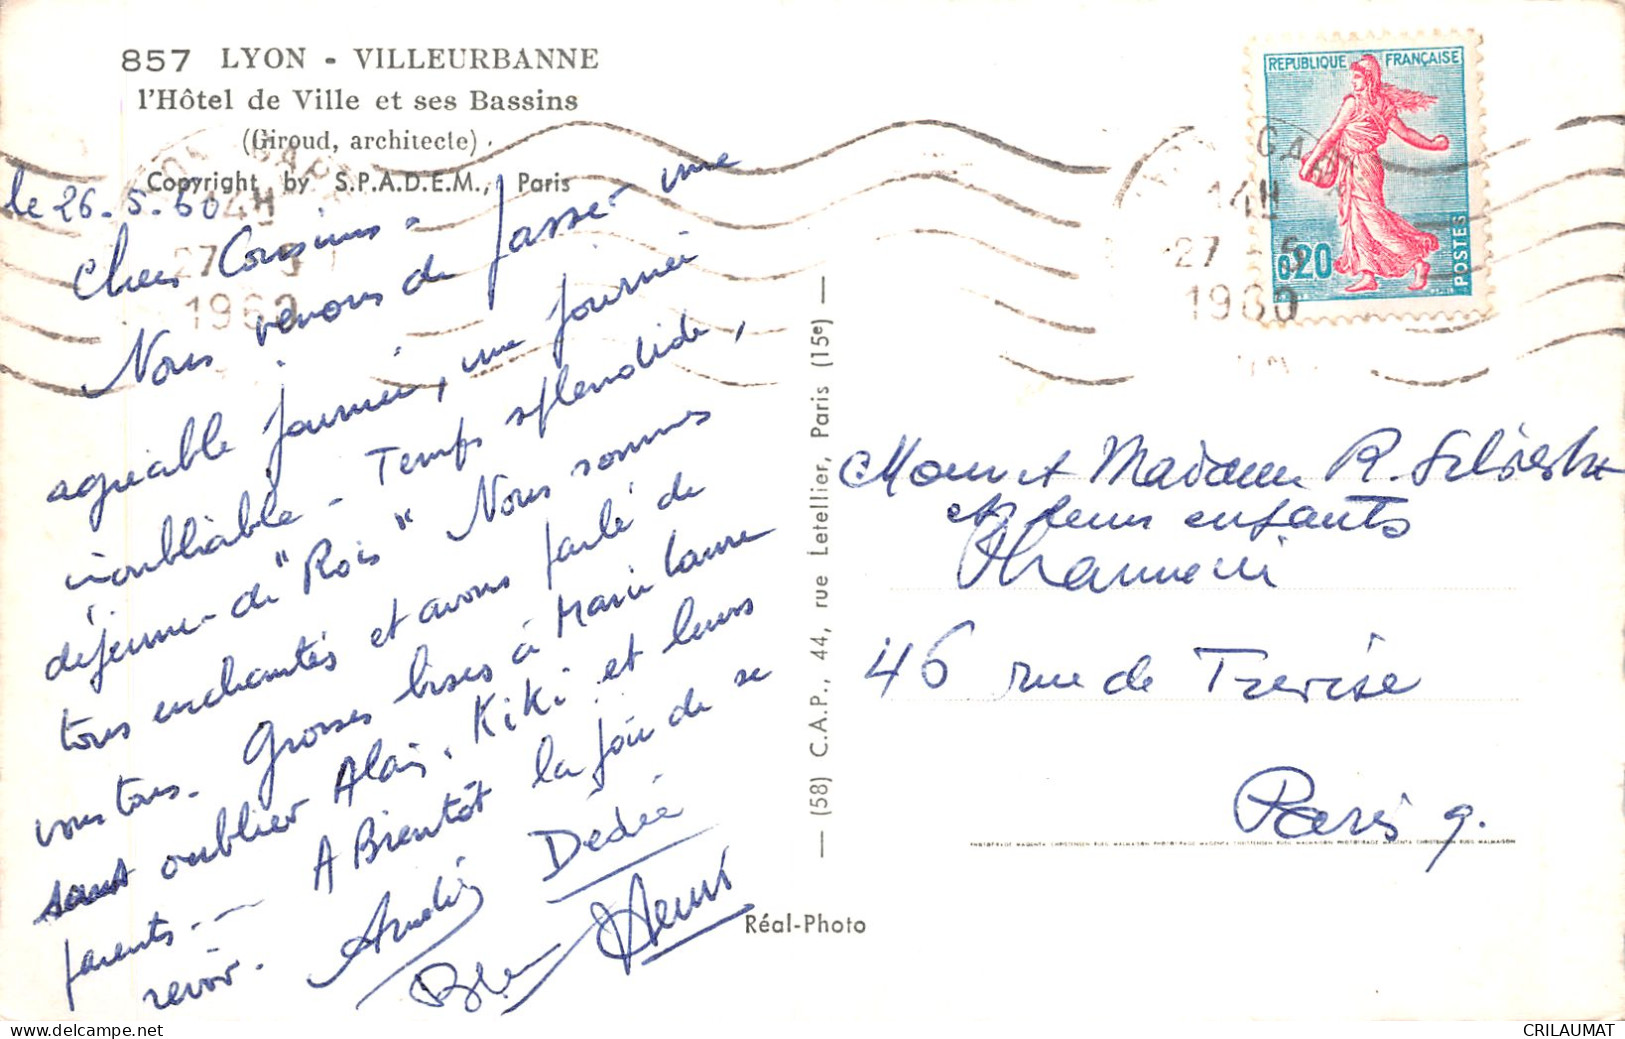 857 LYON - VILLEURBANNE
l'Hôtel de Ville et ses Bassins
(Giroud, architecte)
Copyright by S.P.A.D.E.M., Paris
le 26.5.60
Chers Cousins =
Nous venons de passer une
agréable journée, une journée
inoubliable - Temps splendide,
déjeuner de "Rois" Nous sommes
tous enchantés et avons parlé de
vous tous. Grosses bises à Marie Laure
sans oublier Alain, Kiki et leurs
parents -- A Bientôt la joie de se
revoir.
Dédée
(58) C.A.P., 44, rue Letellier, Paris (15e)
Réal-Photo
REPUBLIQUE FRANÇAISE
0,20
POSTES
14H
27 - 5
1960
14H
27 5
1960
et Madame R.
et leurs enfants
46 rue de Trevise
Paris 9.
delcampe.net
CRILAUMAT